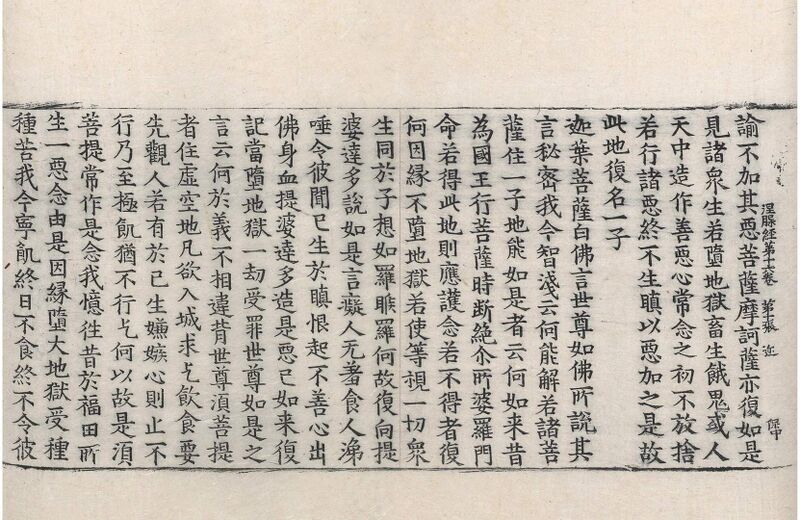 涅槃經第十六卷 第張
諭不加其惡菩薩摩訶薩亦復如是
見諸衆生若墮地獄畜生餓鬼或人
天中造作善惡心常念之初不放捨
若行諸惡終不生瞋以惡加之是故
此地復名一子
迦葉菩薩白佛言世尊如佛所說其
言秘密我今智淺云何能解若諸菩
薩住一子地能如是者云何如來昔
為國王行菩薩時断絶尒所婆羅門
命若得此地則應護念若不得者復
何因縁不墮地獄若使等視一切衆
生同於子想如羅睺羅何故復向提
婆達多說如是言癡人无羞食人涕
唾令彼聞已生於瞋恨起不善心出
佛身血提婆達多造是惡已如來復
記當墮地獄一劫受罪世尊如是之
言云何於義不相違背世尊湏菩提
者住虛空地凡欲入城求乞飲食要
先觀人若有於已生嫌嫉心則止不
行乃至極飢猶不行乞何以故是湏
菩提常作是念我憶往昔於福田所
生一惡念由是因縁墮大地獄受種
種苦我今寧飢終日不食終不令彼